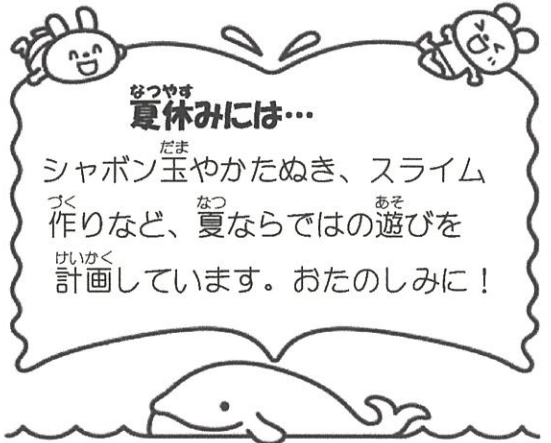 夏休みには…
シャボン玉やかたぬき、スライム
作りなど、夏ならではの遊びを
計画しています。おたのしみに！